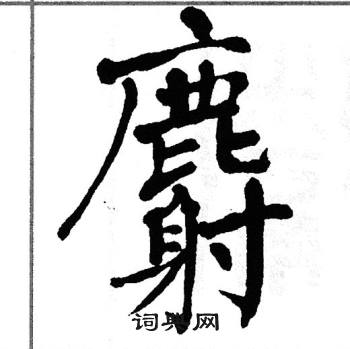 麝
词典网